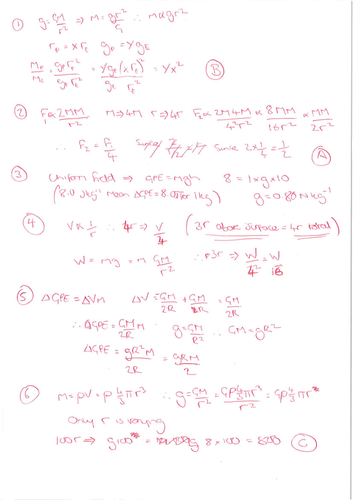 ① g = GM/r² ⇒ M = gr²/G ∴ M ∝ gr²
r₀ = x rE g₀ = y gE
M₀/ME = g₀r₀²/gErE² = ygE(x rE)²/gE rE² = yx² Ⓑ
② F₁ ∝ 2MM/r² M ⇒ 4M r ⇒ 4r F₂ ∝ 2M4M/4²r² ∝ 8MM/16r² ∝ MM/2r²
∴ F₂ = F₁/4 since 2 × 1/4 = 1/2 Ⓐ
③ Uniform field ⇒ GPE = mgh 8 = 1 × g × 10
(8.0 Jkg⁻¹ mean ΔGPE = 8.0J for 1kg) g = 0.80 Nkg⁻¹
④ V ∝ 1/r ∴ 4r ⇒ V/4 (3r above surface = 4r total)
W = mg = m GM/r² ∴ r3r ⇒ W/4² = W/16
⑤ ΔGPE = ΔVm ΔV = GM/2R + GM/R = GM/2R
∴ ΔGPE = GMm/2R g = GM/R² ∴ GM = gR²
ΔGPE = gR²M/2R = gRM/2
⑥ M = ρV = ρ 4/3 πr³ ∴ g = GM/r² = Gρ4/3πr³/r² = Gρ4/3πr
Only r is varying
100r ⇒ g100 = 8 × 100 = 800 Ⓒ